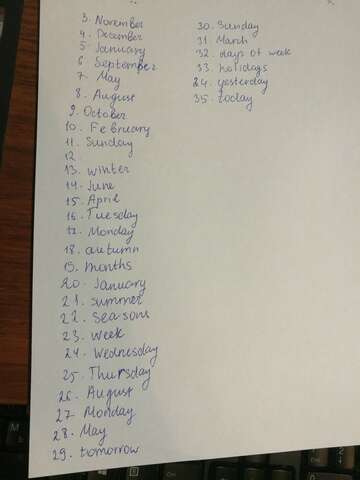 3. November
4. December
5. January
6. September
7. May
8. August
9. October
10. February
11. Sunday
12.
13. winter
14. June
15. April
16. Tuesday
17. Monday
18. autumn
19. months
20. January
21. summer
22. seasons
23. week
24. Wednesday
25. Thursday
26. August
27. Monday
28. May
29. tomorrow
30. Sunday
31. March
32. days of week
33. holidays
34. yesterday
35. today